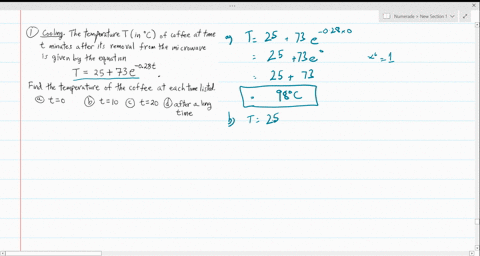 Numerade > New Section 1
① Cooling. The temperature T (in °C) of coffee at time
t minutes after its removal from the microwave
is given by the equation
T = 25 + 73e^-0.28t
Find the temperature of the coffee at each time listed.
ⓐ t=0 ⓑ t=10 ⓒ t=20 ⓓ after a long
time
a) T = 25 + 73 e^-0.28×0
= 25 + 73e^0
x^0 = 1
= 25 + 73
= 98°C
b) T = 25